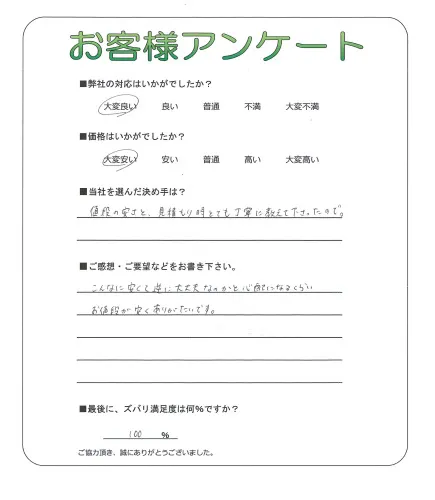 お客様アンケート
■弊社の対応はいかがでしたか？
大変良い 良い 普通 不満 大変不満
■価格はいかがでしたか？
大変安い 安い 普通 高い 大変高い
■当社を選んだ決め手は？
値段の安さと、見積もり時とても丁寧に教えて下さったので。
■ご感想・ご要望などをお書き下さい。
こんなに安くて逆に大丈夫なのかと心配になるくらい
お値段が安くありがたいです。
■最後に、ズバリ満足度は何％ですか？
100 %
ご協力頂き、誠にありがとうございました。